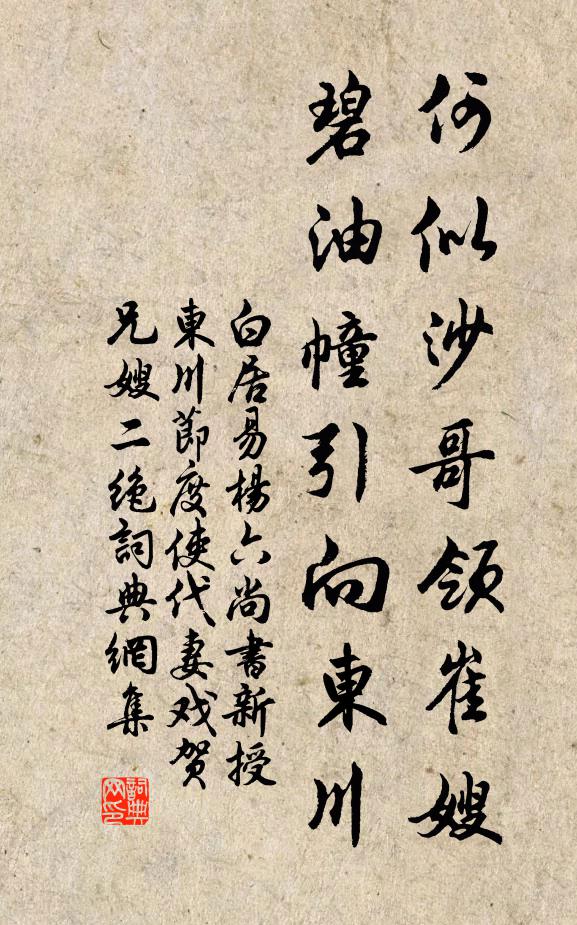 何似沙哥領崔嫂
碧油幢引向東川
白居易楊六尚書新授
東川節度使代妻戏贺
兄嫂二絶詞典網集
詞典网印